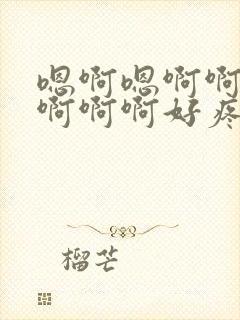 嗯啊嗯啊啊
啊啊啊好疼
榴芒